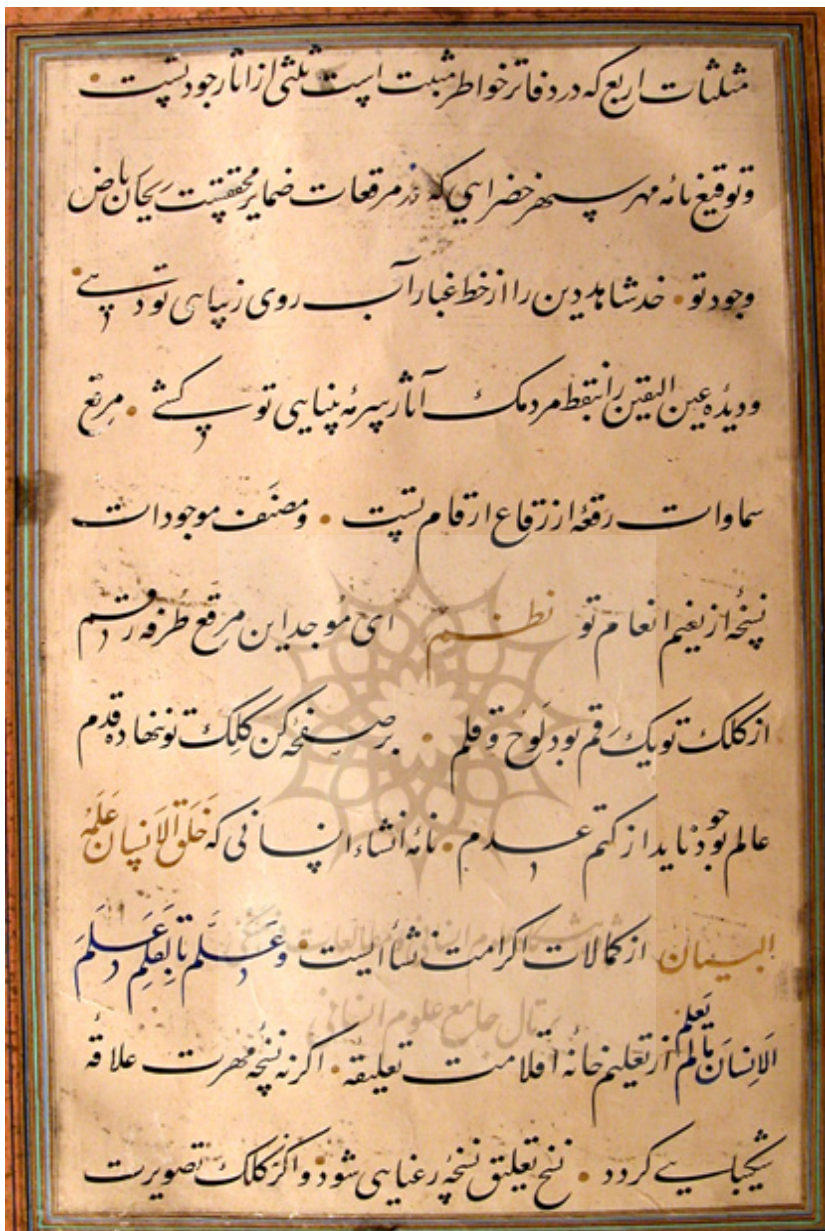 مثلثات اربع که در دفاتر خواطر مثبت است ثلثی از اثار جود تست
و توقیع نامه مهر سپهر خضرایی که در مرقعات ضمایر محققست ریحان ریاض
وجود تو خد شاهد دین را از خط غبار آب روی زیبایی تو دهی
و دیده عین الیقین را بنقط مردمک آثار سرمه بینایی تو کشی مرقع
سماوات رقعه از رقاع ارقام تست و مصنف موجودات
نسخه از نعیم انعام تو نظم ای موجد این مرقع طرفه رقم
از کلک تو یک رقم بود لوح و قلم بر صفحه کن کلک تو ننهاده قدم
عالم بوجود ناید از کتم عدم نامه انشاء انسانی که خَلَقَ الاِنسانَ عَلَّمَهُ
البیان از کمالات اکرامت نشأ ایست وَ عَلَّم بِالقَلَمِ عَلَّمَ
الاِنسانَ مالَم یَعلَم از تعلیم خانه اقلامت تعلیقه اگر نه نسخه مهرت علاقه
شکیبایی گردد نسخ تعلیق نسخه رعنایی شود و اگر کلک تصویرت
پژوهشگاه علوم انسانی و مطالعات فرهنگی
پرتال جامع علوم انسانی